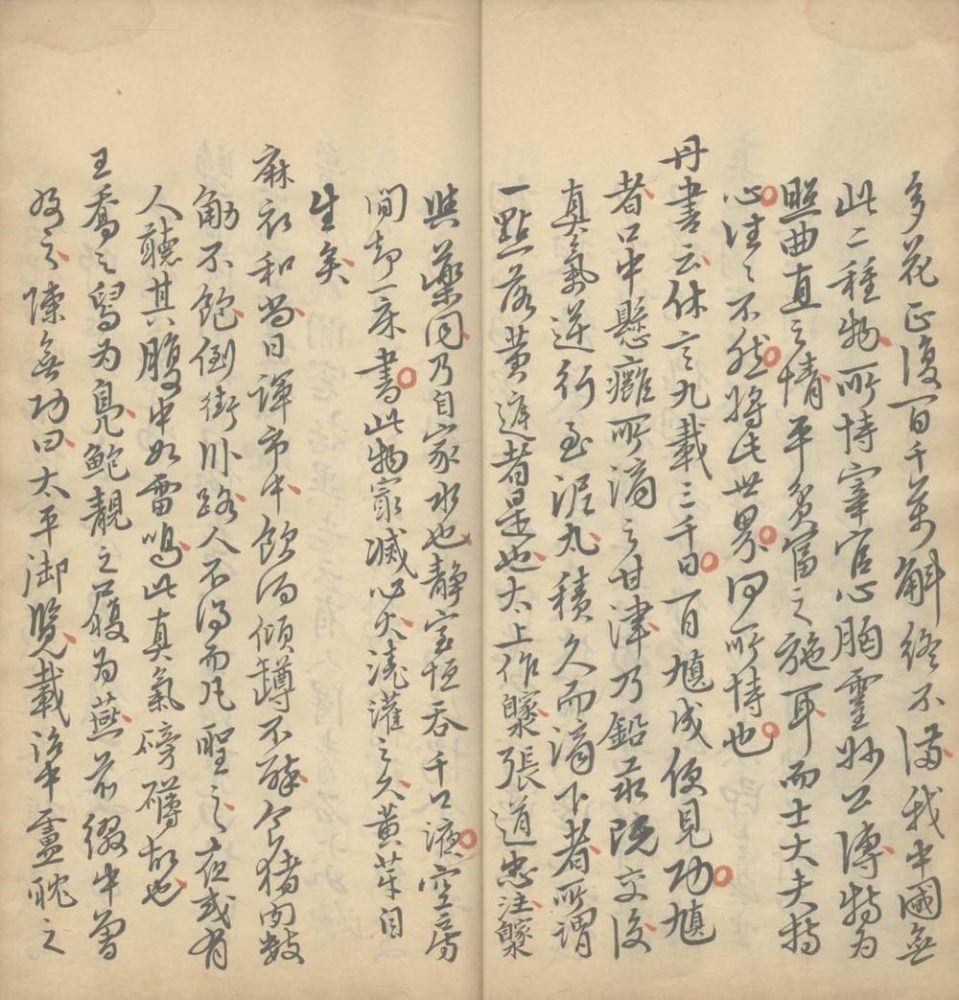 多花正復百千萬斛終不滿我中國無
此二種物所恃宰官心胸靈妙公溥特為
照曲直之情平貧富之施耳而士大夫持
心往々不然將此世界何所恃也
丹書云休言九載三千日百馗成便見功馗
者口中懸癰所滴之甘津乃鉛汞既交後
真氣逆行至泥丸積久而滴下者所謂
一點落黃庭者是也太上作 張道忠注
與藥同乃自家水也靜室恒吞千口液空房
閒却一床書此物最滅心火澆灌之久黃芽自
生矣
麻衣和尚日譁市中飲酒傾罇不醉食猪肉數
觔不飽倒街臥路人不得而凡聖之夜或有
人聽其腹中如雷鳴此真氣磅礡故也
王喬之舄為鳧鮑靚之履為燕前綴中曾
及之陳無功曰太平御覽載 中盧耽之